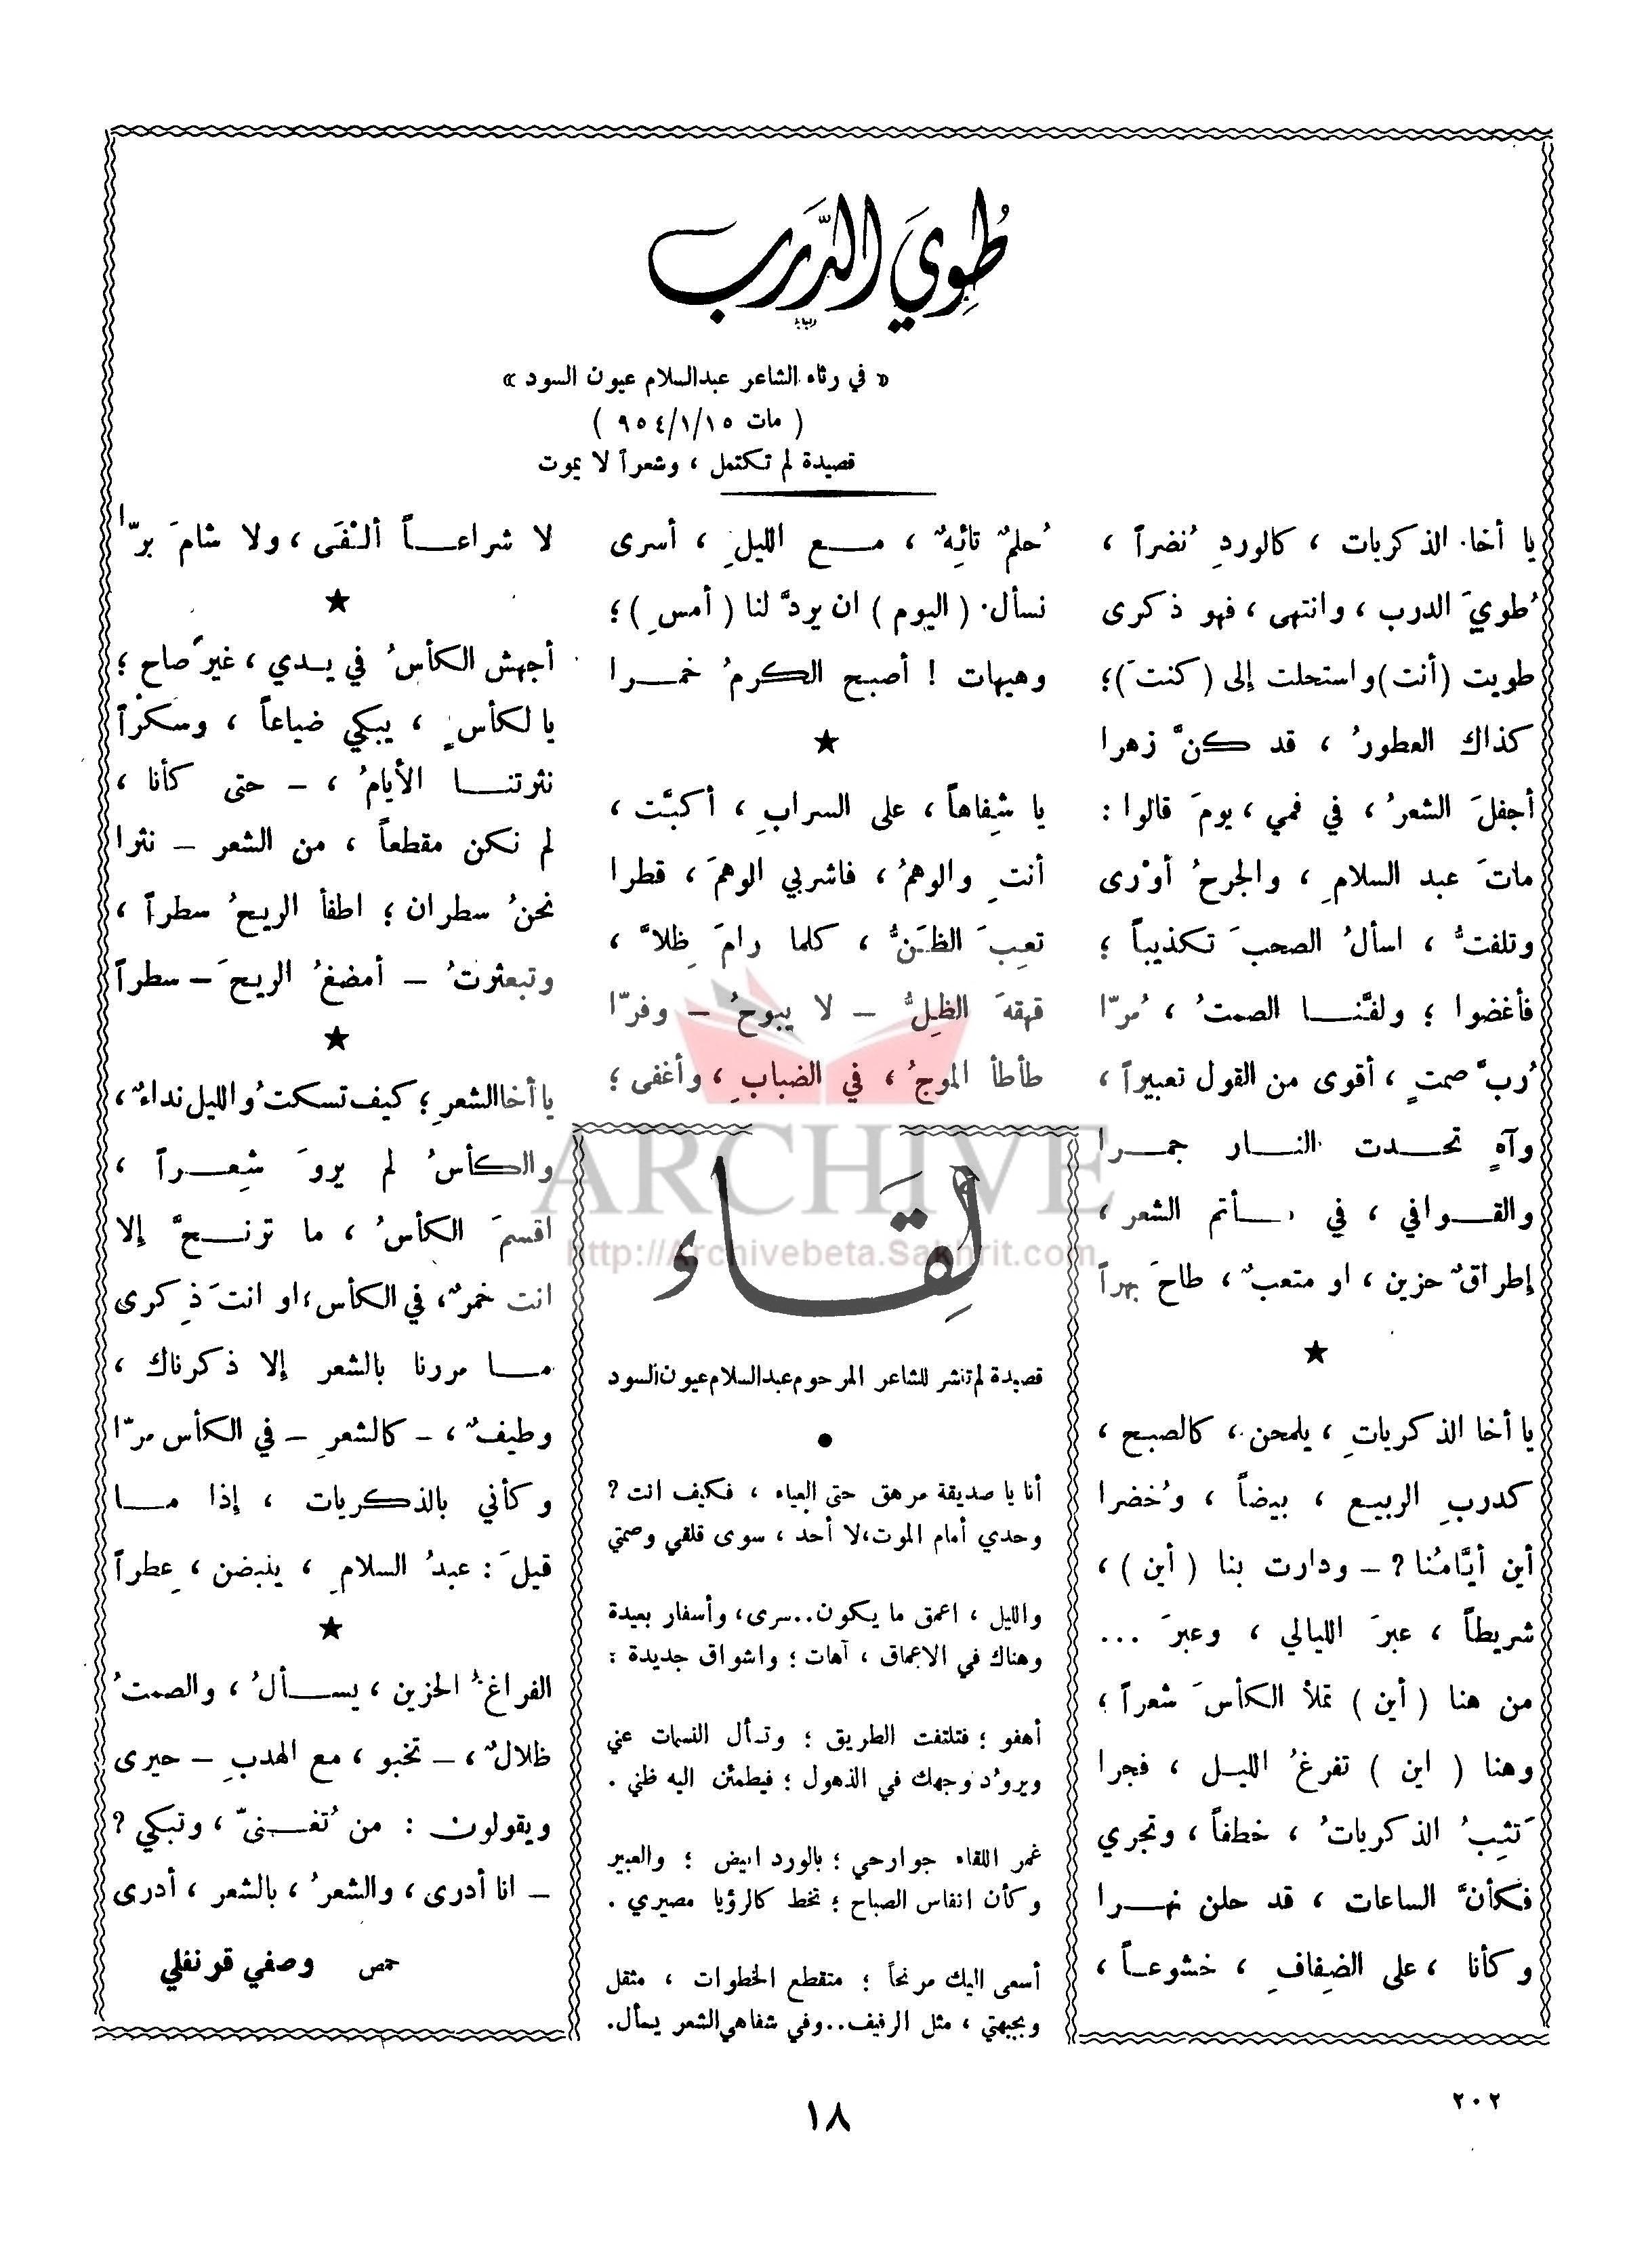 طُوِيَ الدَّرب
« في رثاء الشاعر عبدالسلام عيون السود »
( مات ٩٥٤/١/١٥ )
قصيدة لم تكتمل ، وشعراً لا يموت
يا أخا الذكريات ، كالوردِ نُضراً ،
طُويَ الدرب ، وانتهى ، فهو ذكرى
طويت (أنت) واستحلت إلى (كنتَ)؛
كذاك العطورُ ، قد كنَّ زهرا
أجفلَ الشعرُ ، في فمي ، يومَ قالوا :
ماتَ عبد السلامِ ، والجرحُ أوْرى
وتلفتُّ ، اسألُ الصحبَ تكذيباً ؛
فأغضوا ؛ ولفَّنا الصمتُ ، مُرّا
رُبَّ صمتٍ ، أقوى من القول تعبيراً ،
وآهٍ تحدت النار جمرا
والقوافي ، في مأتم الشعر ،
إطراقٌ حزين ، او متعبٌ ، طاحَ بهراً
★
يا أخا الذكرياتِ ، يلمحن ، كالصبح ،
كدربِ الربيع ، بيضاً ، وخُضرا
أين أيَّامُنا ? – ودارت بنا ( أين ) ،
شريطاً ، عبرَ الليالي ، وعبرَ ...
من هنا ( أين ) تملأ الكأسَ شعراً ؛
وهنا ( اين ) تفرغُ الليل ، فجرا
تَثِبُ الذكرياتُ ، خطفاً ، وتجري
فكأنَّ الساعات ، قد حلن نهرا
وكأنا ، على الضِفافِ ، خشوعاً ،
حُلمٌ تائِهٌ ، مع الليلِ ، أسرى
نسأل ( اليوم ) ان يردَّ لنا ( أمسِ ) ؛
وهيهات ! أصبح الكرمُ خمرا
★
يا شِفاهاً ، على السرابِ ، أكبَّت ،
أنتِ والوهمُ ، فاشربي الوهمَ ، قطرا
تعِبَ الظَنُّ ، كلما رامَ ظِلاًّ ،
قهقهَ الظِلُّ – لا يبوحُ – وفرّا
طأطأ الموجُ ، في الضبابِ ، وأغفى ؛
لا شراعاً ألْقَى ، ولا شامَ برّا
★
أجهش الكأسُ في يدي ، غيرَ صاح ؛
يا لكأسٍ ، يبكي ضياعاً ، وسكْراً
نثرتنا الأيامُ ، – حتى كأنا ،
لم نكن مقطعاً ، من الشعر – نثرا
نحنُ سطران ؛ اطفأ الريحُ سطراً ،
وتبعثرتُ – أمضغُ الريحَ – سطراً
★
يا أخا الشعرِ ؛ كيف تسكتُ والليل نداءٌ ،
والكأسُ لم يروَ شِعراً ،
اقسمَ الكأسُ ، ما ترنحَّ إلا
انت خمرٌ ، في الكأس ، او انتَ ذِكرى
ما مررنا بالشعر إلا ذكرناك ،
وطيفٌ ، – كالشعرِ – في الكأس مرّا
وكأني بالذكريات ، إذا ما
قيلَ : عبدُ السلامِ ، ينبضن ، عِطراً
★
الفراغُ الحزين ، يسألُ ، والصمتُ
ظلالٌ ، – تخبو ، مع الهدبِ – حيرى
ويقولون : من تُغنىّ ، وتبكي ?
– انا أدرى ، والشعرُ ، بالشعر ، أدرى
حمص وصفي قرنفلي
لِقَاء
قصيدة لم تنشر للشاعر المرحوم عبدالسلام عيون السود
●
أنا يا صديقة مرهق حتى العياء ، فكيف انت ?
وحدي أمام الموت، لا أحد ، سوى قلقي وصمتي
والليل ، اعمق ما يكون.. سرى، وأسفار بعيدة
وهناك في الاعماق ، آهات ؛ واشواق جديدة :
أهفو ؛ فتلتفت الطريق ؛ وتسأل النسمات عني
ويرود وجهك في الذهول ؛ فيطمئن اليه ظني .
غمر اللقاء جوارحي ؛ بالورد ابيض ؛ والعبير
وكأن انفاس الصباح ؛ تخط كالرؤيا مصيري .
أسعى اليك مرنحاً ؛ متقطع الخطوات ، مثقل
وبجبهتي ، مثل الرفيف.. وفي شفاهي الشعر يسأل.
٢٠٢
١٨
ARCHIVE
http://Archivebeta.Sakhrit.com